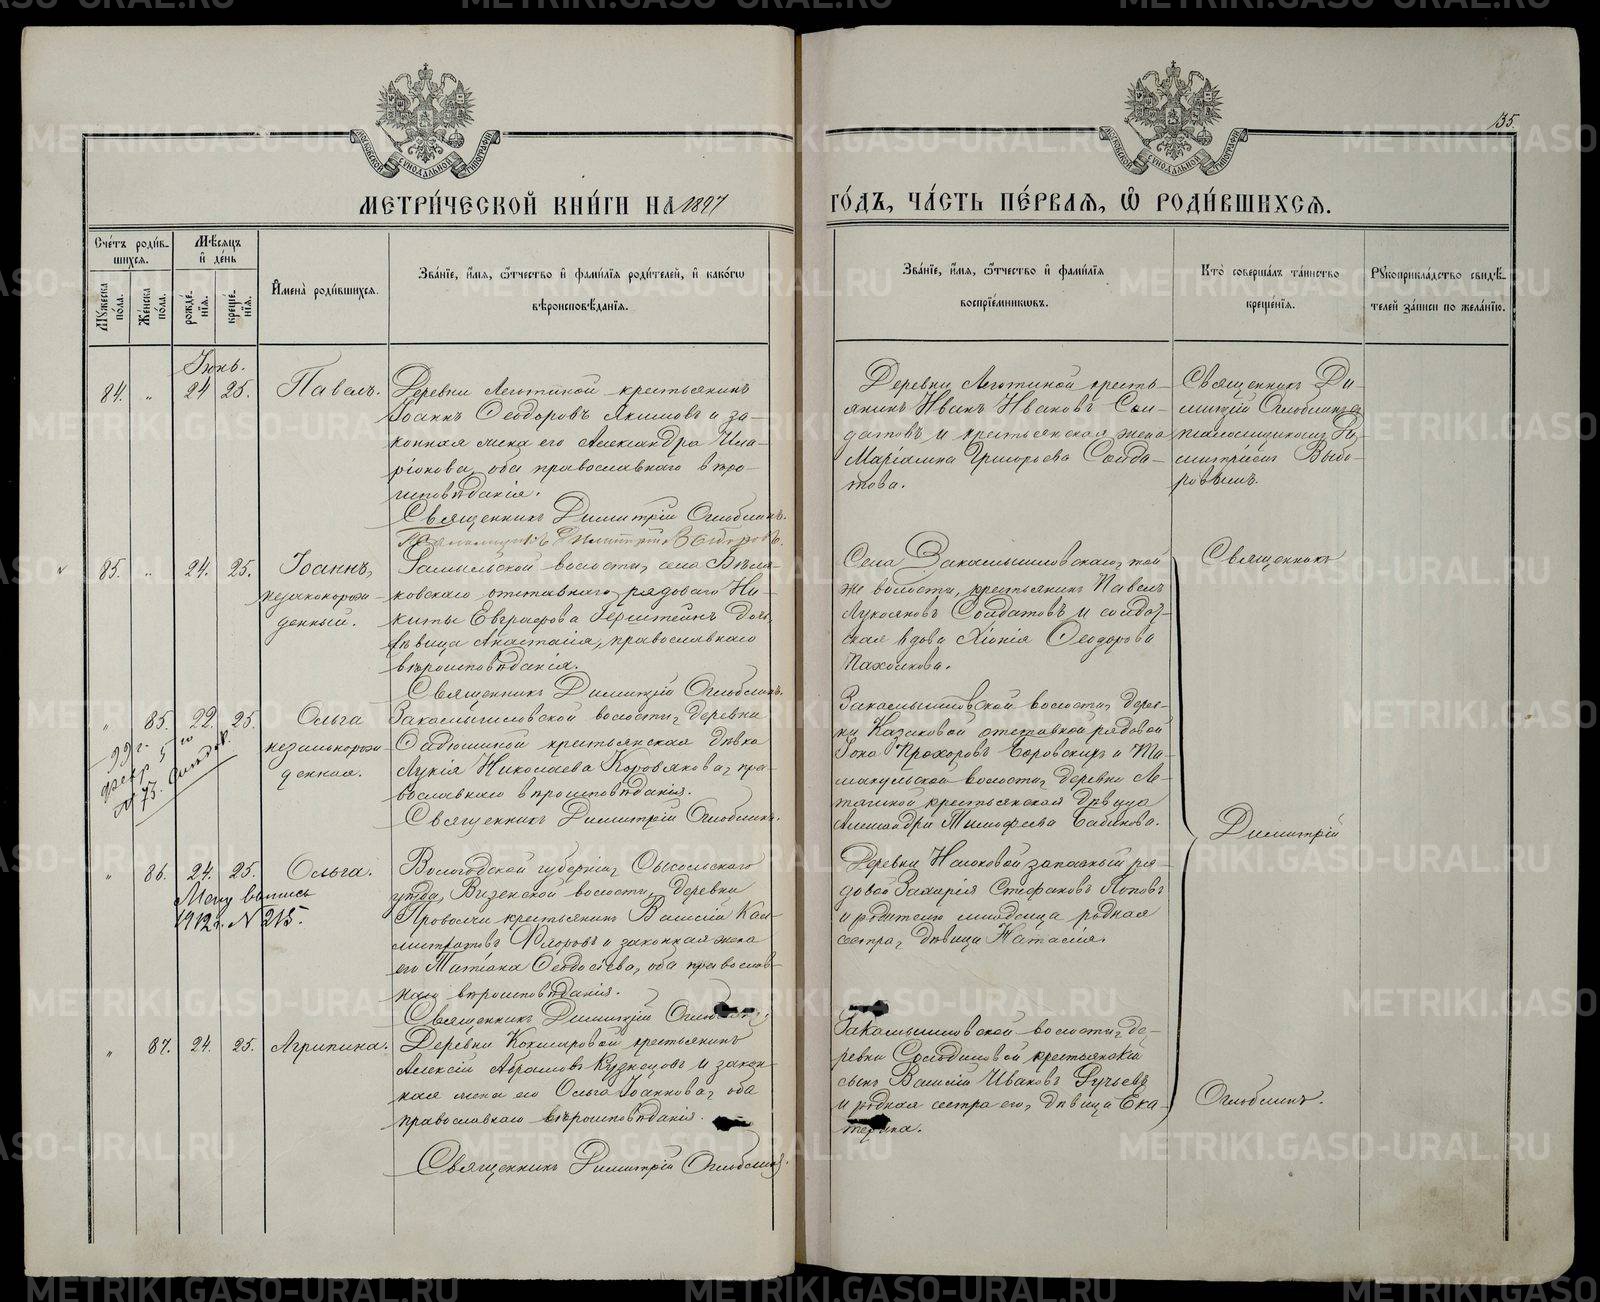 135.
МЕТРИ́ЧЕСКОЙ КНИ́ГИ НА 1897
ГО́ДЪ, ЧА́СТЬ ПЕ́РВАЯ, Ѡ РОДИ́ВШИХСЯ.
Сче́тъ роди́вшихся.
Му́жеска по́ла.
Же́нска по́ла.
Мѣ́сяцъ и҆ де́нь
рожде́нїя.
креще́нїя.
И҆мена̀ роди́вшихся.
Зва́нїе, и҆́мя, ѻ҆́тчество и҆ фами́лїя роди́телей, и҆ како́гѡ
вѣроисповѣ́данїя.
Зва́нїе, и҆́мя, ѻ҆́тчество и҆ фами́лїя
воспрїе́мникѡвъ.
Кто̀ соверша́лъ та́инство
креще́нїя.
Рꙋкоприкла́дство свидѣ́-
телей за́писи по жела́нїю.
Іюнь.
84. „ 24 25. Павелъ.
Деревни крестьянинъ
Іоаннъ Ѳеодоровъ Акимовъ и за-
конная жена его Александра Ила-
ріонова, оба православнаго вѣро-
исповѣданія.
Священникъ Димитрій Оглоблинъ.
Псаломщикъ Димитрій Выборовъ.
Деревни кресть-
янинъ Иванъ Ивановъ Сол-
датовъ и крестьянская жена
Маріамна Григорьева Солда-
това.
Священникъ Ди-
митрій Оглоблинъ съ
псаломщикомъ Ди-
митріемъ Выбо-
ровымъ.
85. „ 24. 25. Іоаннъ,
незаконорож-
денный.
волости, села Бѣла-
ковскаго отставного рядового Ни-
киты Евграфова дочь,
дѣвица Анастасія, православнаго
вѣроисповѣданія.
Священникъ Димитрій Оглоблинъ.
Села Закамышловскаго, той
же волости, крестьянинъ Павелъ
Лукояновъ Солдатовъ и солдат-
ская вдова Хіонія Ѳеодорова
Пахомова.
Священникъ
„ 85. 22. 25. Ольга
незаконорож-
денная.
99 г.
февр. 5 го
№ 73.
Закамышловской волости, деревни
крестьянская дѣвка
Лукія Николаева Коровякова, пра-
вославнаго вѣроисповѣданія.
Священникъ Димитрій Оглоблинъ.
Закамышловской волости, дерев-
ни Казаковой отставной рядовой
Іона Прохоровъ Боровскихъ и
волости, деревни
крестьянская дѣвица
Александра Тимофеева Бабикова.
Димитрій
„ 86. 24. 25. Ольга.
Метр. выпись
1912 г. № 215.
Вологодской губерніи, Сысольскаго
уѣзда, Визенской волости, деревни
крестьянинъ Василій Кал-
листратовъ Флоровъ и законная жена
его Татіана Ѳеодосіева, оба православ-
наго вѣроисповѣданія.
Священникъ Димитрій
Деревни запасный ря-
довой Захарія Стефановъ Поповъ
и родителю младенца родная
сестра, дѣвица Наталія.
„ 87. 24. 25. Агрипина.
Деревни крестьянинъ
Алексій Абрамовъ Кузнецовъ и закон-
ная жена его Ольга Іоаннова, оба
православнаго вѣроисповѣданія.
Священникъ Димитрій Оглоблинъ.
Закамышловской волости, де-
ревни Солодиловой крестьянскій
сынъ Василій Ивановъ
и родная сестра его, дѣвица Ека-
терина.
Оглоблинъ.
METRIKI.GASO-URAL.RU